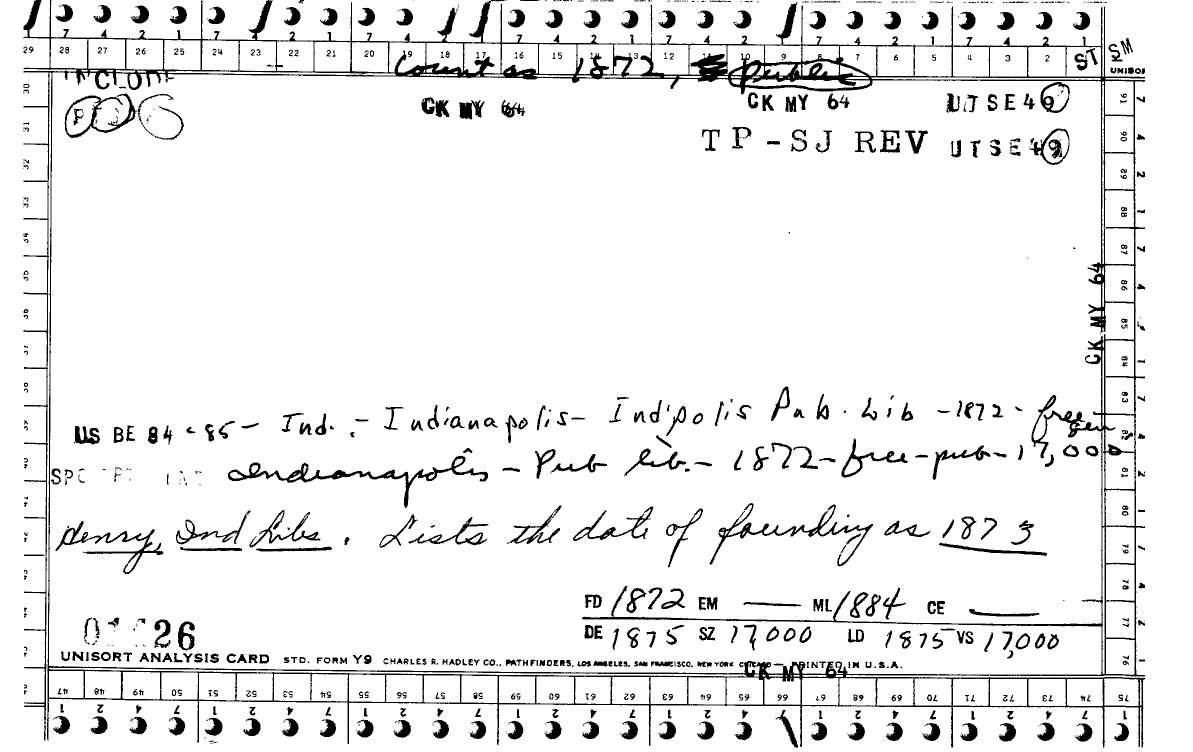 7 4 2 1 7 4 2 1 7 4 2 1 7 4 2 1 7 4 2 1 7 4 2 1 7 4 2 1
29 28 27 26 25 24 23 22 21 20 19 18 17 16 15 14 13 12 11 10 9 8 7 6 5 4 3 2 ST SM
UNISOR
Count as 1872, Public
INCLUDE
CK MY 64 CK MY 64 UTSE49
TP-SJ REV UTSE49
CK MY 64
US BE 84-85- Ind. - Indianapolis- Ind'polis Pub. Lib -1872- free- gen
Indianapolis - Pub lib. - 1872-free-pub-17,000
Henry, Ind Libs. Lists the date of founding as 1873
FD 1872 EM — ML 1884 CE —
DE 1875 SZ 17,000 LD 1875 VS 17,000
26
UNISORT ANALYSIS CARD STD. FORM Y9 CHARLES R. HADLEY CO., PATHFINDERS, LOS ANGELES, SAN FRANCISCO, NEW YORK CHICAGO — PRINTED IN U.S.A.
CK MY 64
47 48 49 50 51 52 53 54 55 56 57 58 59 60 61 62 63 64 65 66 67 68 69 70 71 72 73 74 75
1 2 4 7 1 2 4 7 1 2 4 7 1 2 4 7 1 2 4 7 1 2 4 7 1 2 4 7 1